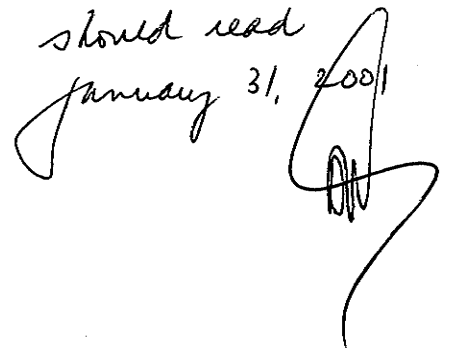 should read
January 31, 2001